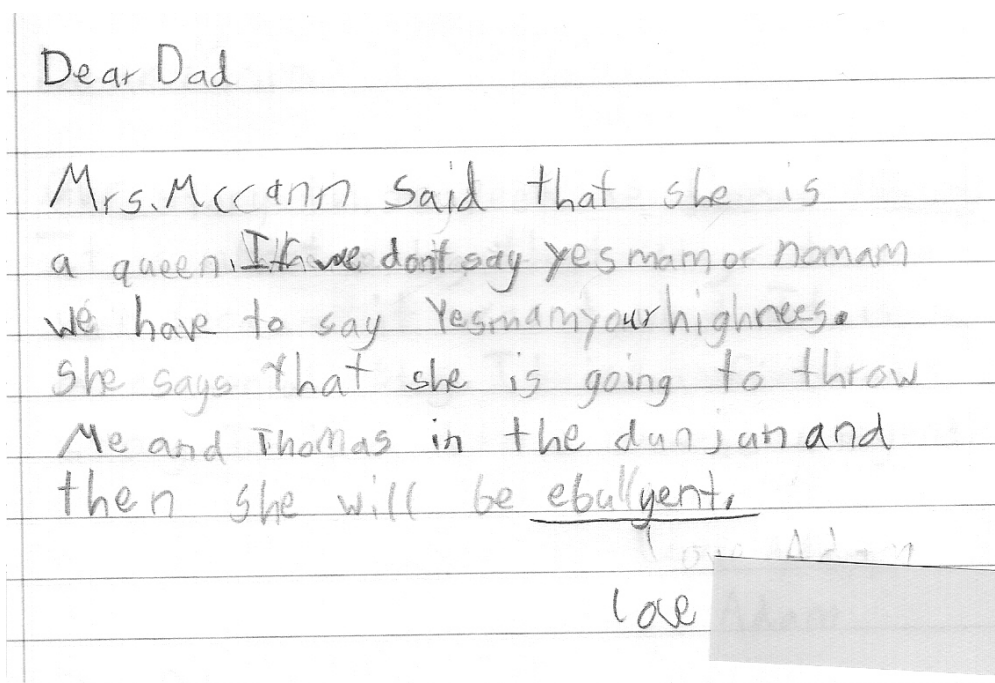 Dear Dad
Mrs. Mccann said that she is
a queen. If we don't say yes mam or nomam
we have to say Yesmamyour highnees.
She says that she is going to throw
Me and Thomas in the dunjun and
then she will be ebullyent.
Love Adam
love Adam